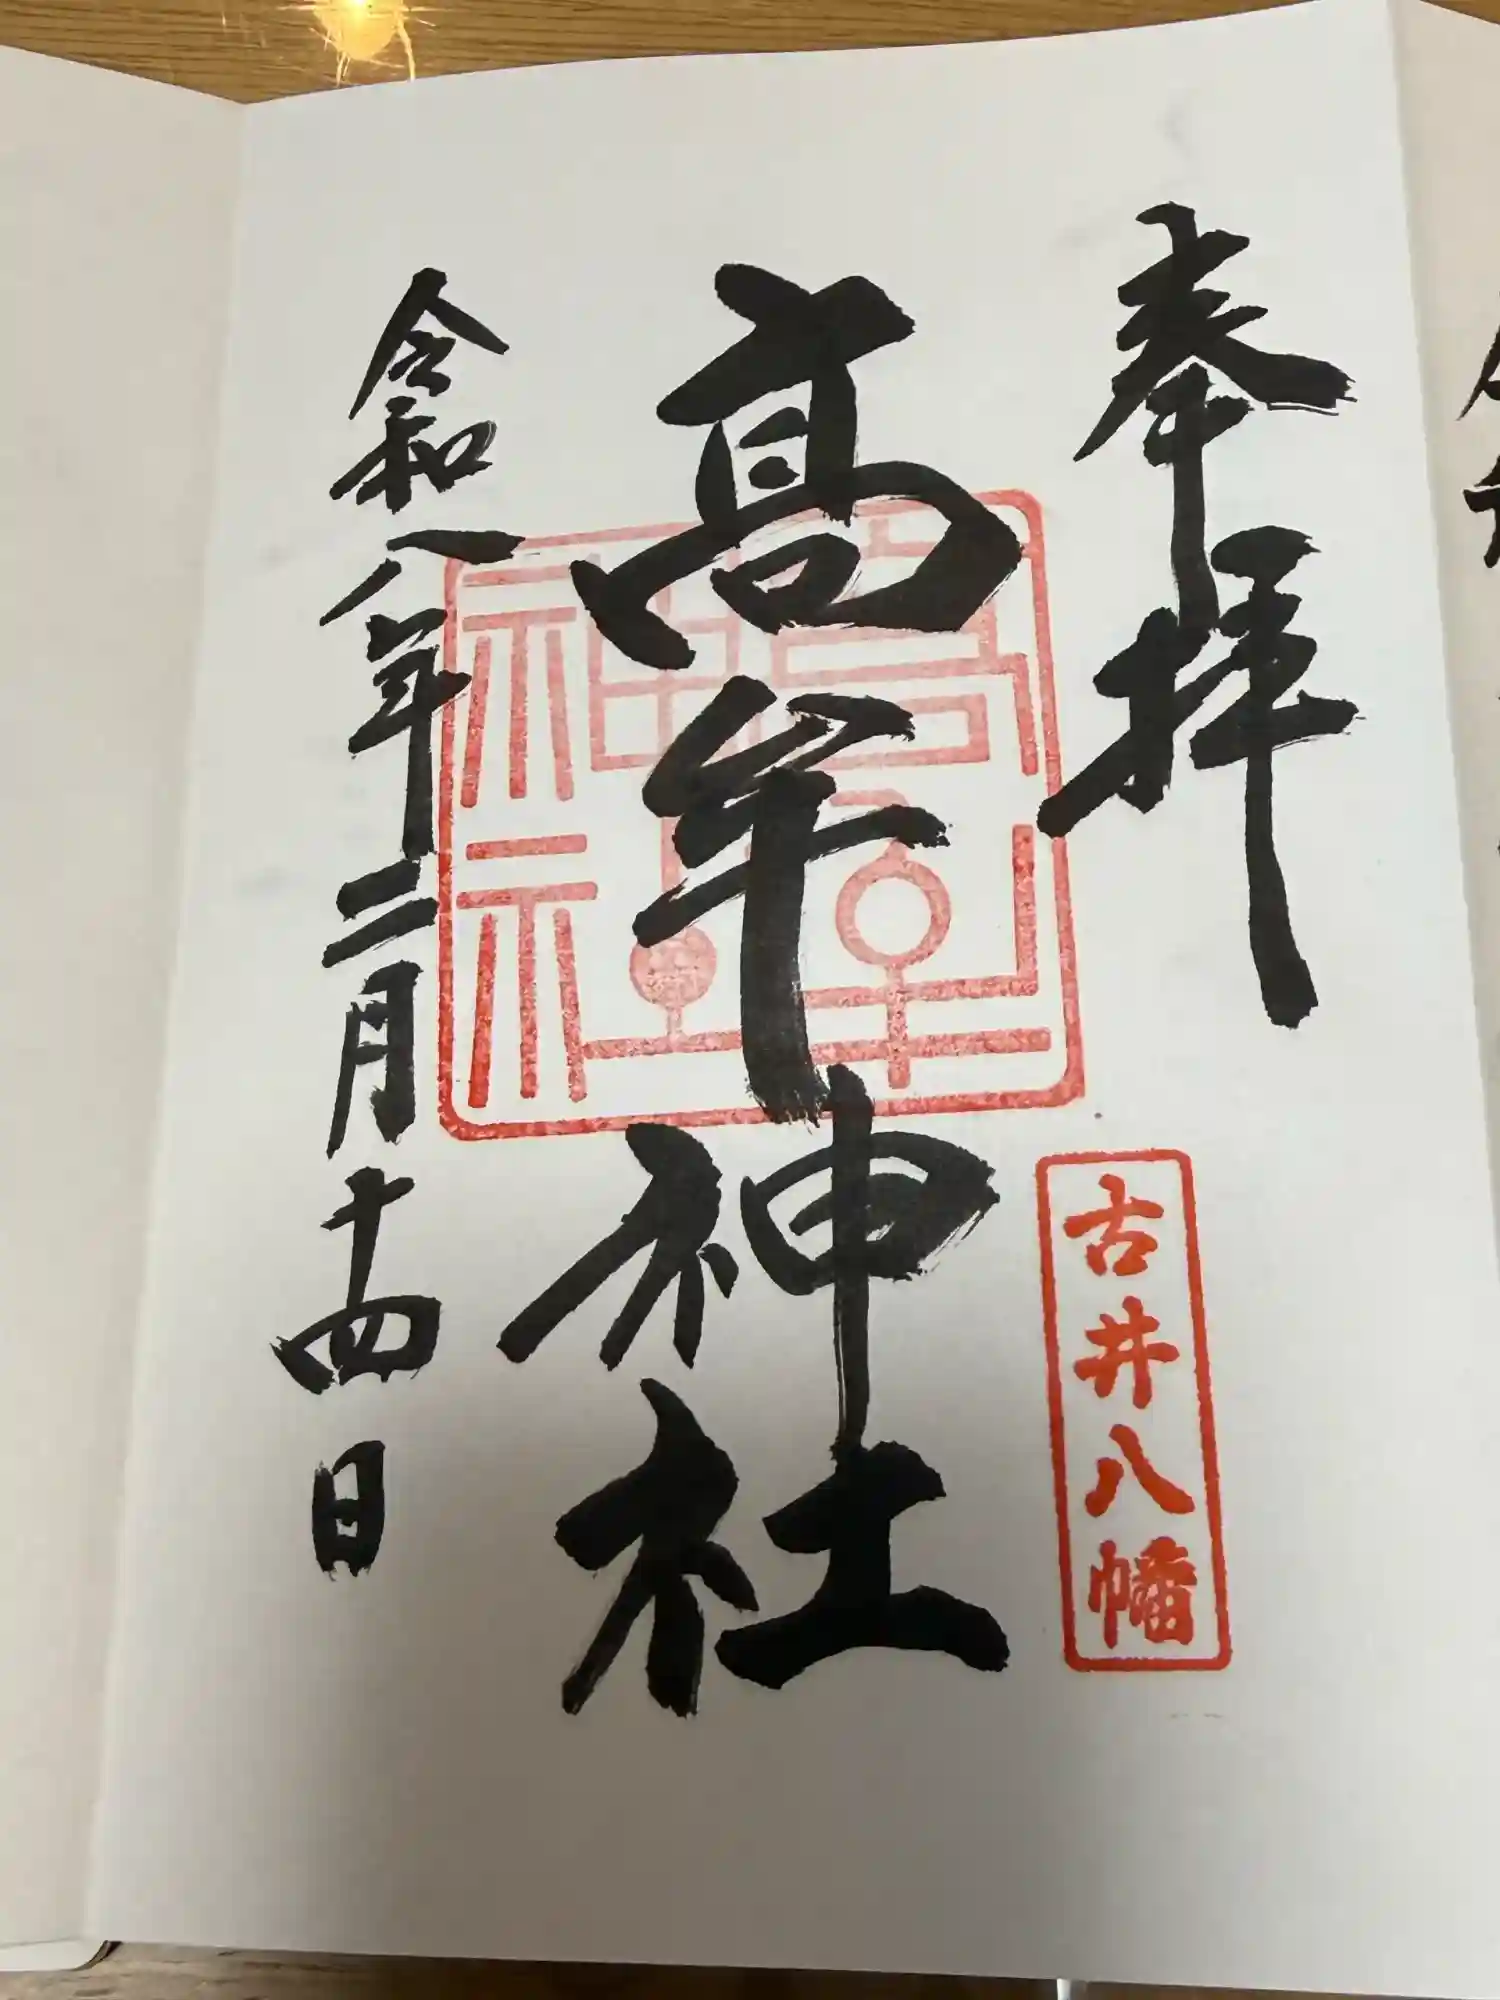 奉拝
古井八幡
高牟神社
高牟神社
令和八年二月十四日